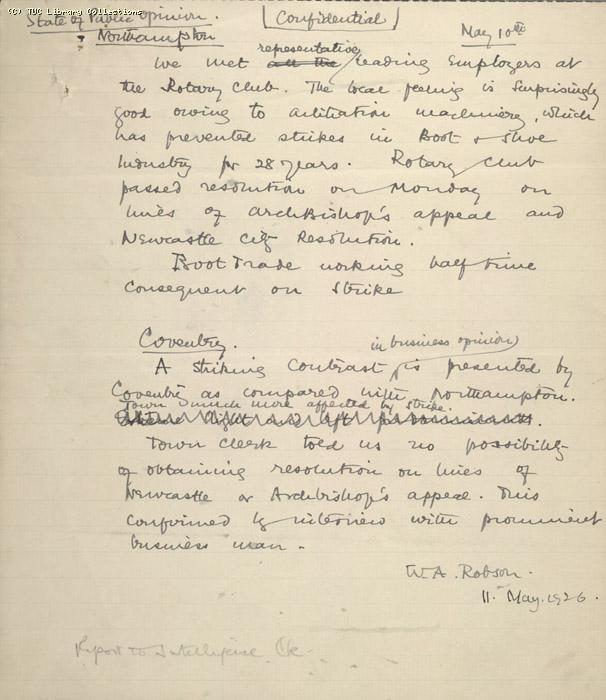 (C) TUC Library Collections
State of Public opinion. [Confidential]
Northampton May 10th
We met all the representative leading Employers at
the Rotary Club. The local feeling is surprisingly
good owing to arbitration machinery, which
has prevented strikes in Boot & Shoe
Industry for 28 years. Rotary Club
passed resolution on Monday on
lines of ArchBishop's appeal and
Newcastle City Resolution.
Boot Trade working half time
consequent on Strike
Coventry.
A striking contrast in business opinion is presented by
Coventry as compared with Northampton.
Town much more affected by strike.
Extreme right and left
Town Clerk told us no possibility
of obtaining resolution on lines of
Newcastle or Archbishop's appeal. This
confirmed by interview with prominent
business man.
W.A. Robson.
11. May. 1926.
Report to Intelligence Cte